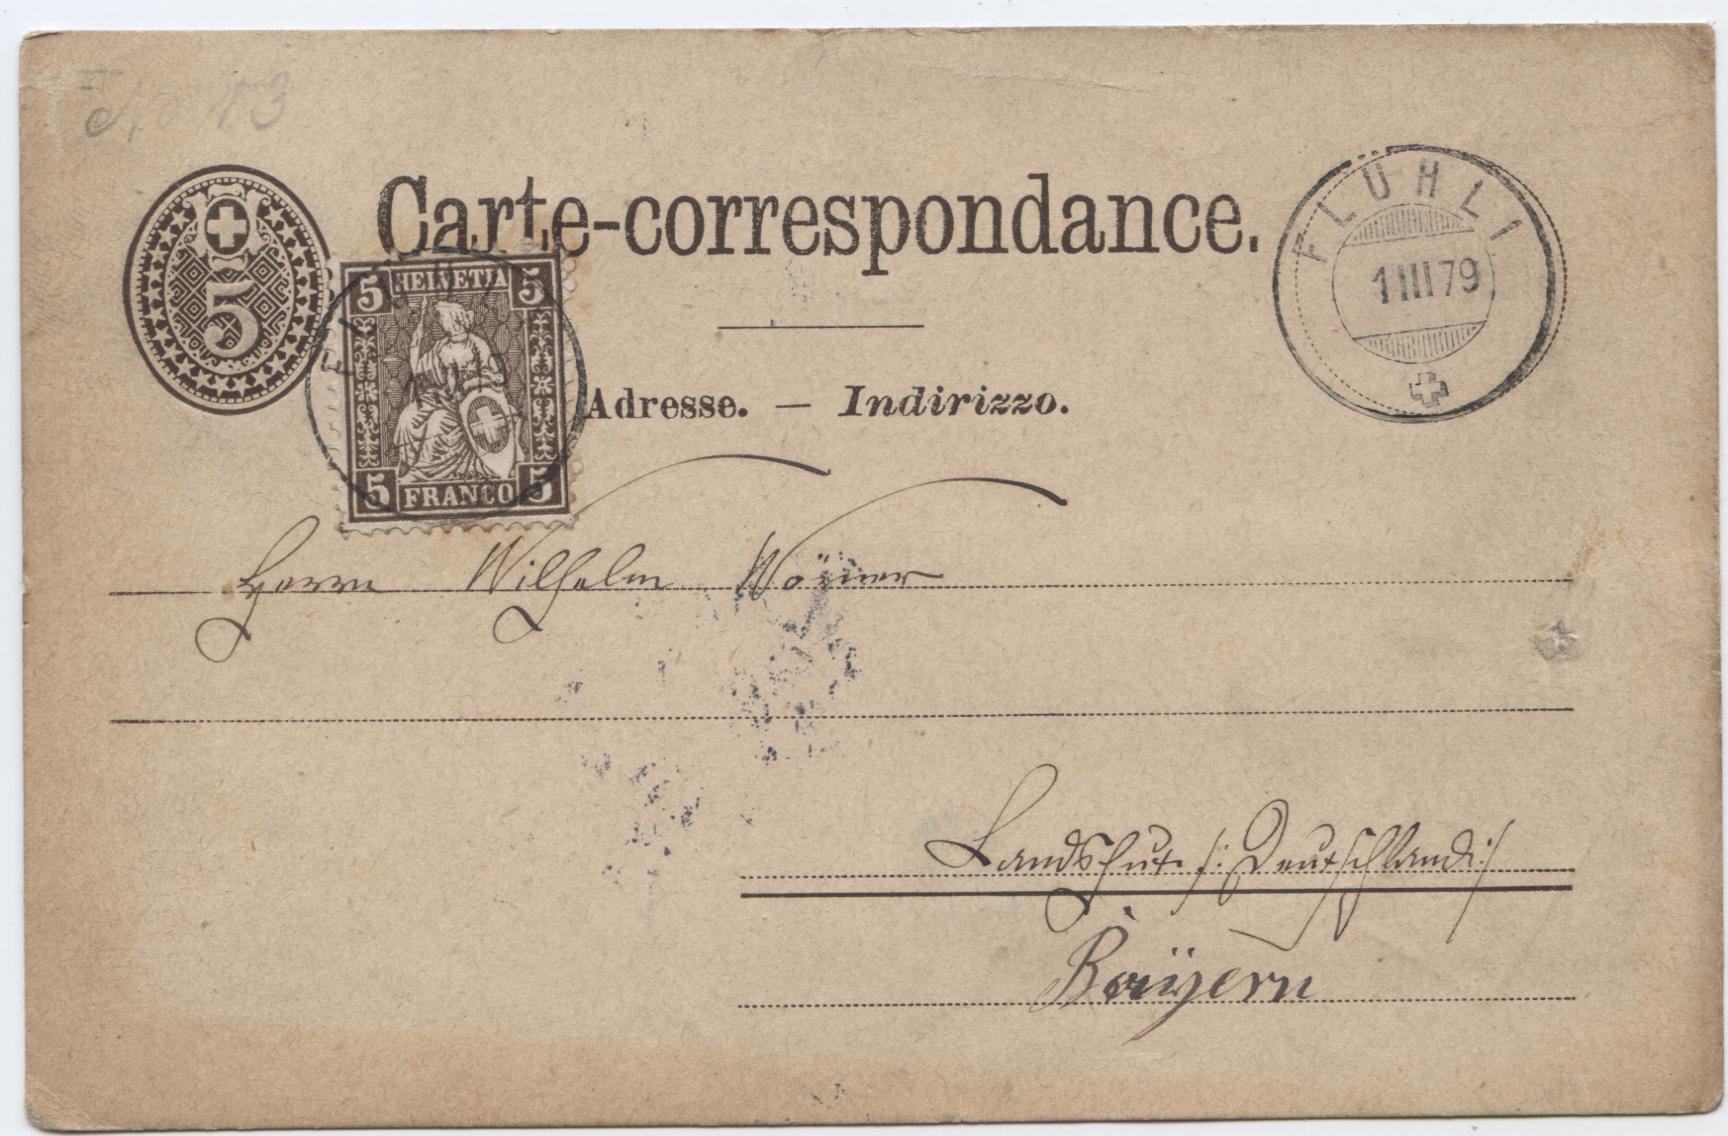 No 13
Carte-correspondance.
5
5 HELVETIA 5
5 FRANCO 5
FLÜHLI
1 III 79
Adresse. — Indirizzo.
Herrn Wilhelm
Landshut /: Deutschland :/
Bayern